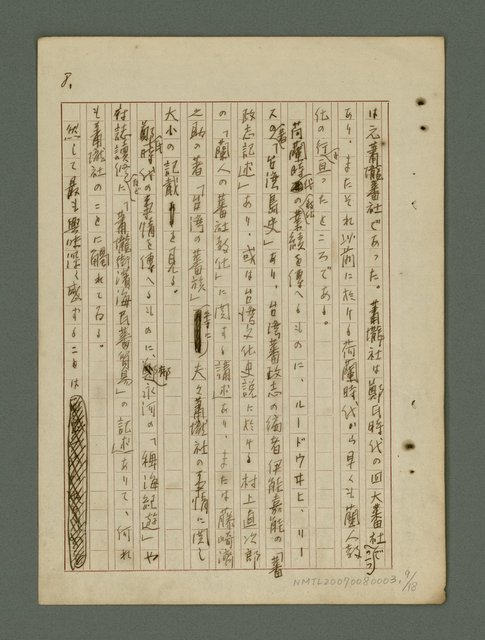 8.
は元蕭壠蕃社であった。蕭壠社は鄭氏時代の四大蕃社の一つで
あり、またそれ以前に於ける荷蘭時代から早くも蘭人教
化の行亘ったところである。
荷蘭時代の業績を傳へるものに、ルードウヰヒ、リー
スの「台湾島史」あり、台湾蕃政志の編者伊能嘉矩の「蕃
政志記述」あり、或は台湾文化史説に於ける村上直次郎
の「蘭人の蕃社教化」に関する講述あり、または藤崎濟
之助の著「台湾の蕃族」等に夫々蕭壠社の事情に関し
大小の記載を見る。
鄭氏時代の事情を傳へるものに、郁永河の「稗海紀遊」や
村誌讀便に「蕭壠街濱海民蕃貿易」の記述ありて、何れ
も蕭壠社のことに觸れてゐる。
然して最も興味深く感ずることは
NMTL20070080003. 9/18